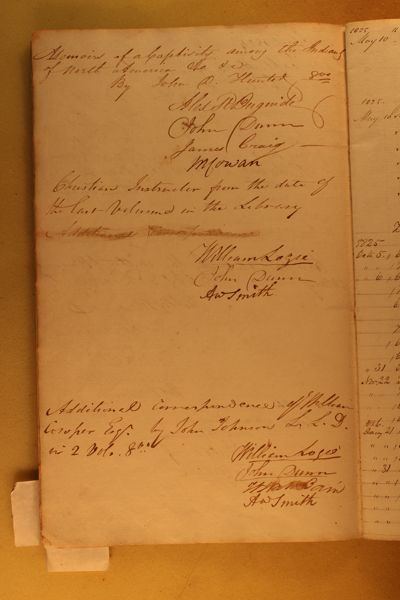 Memoirs of a Captivity among the Indians
of North America &c &c
By John D. Hunter 8vo
John Dunn
James Craig
McCowan
Christian Instructor from the date of
the last Volume in the Library
Additional
William Logie
John Dunn
Aw Smith
Additional Correspondence of William
Cowper Esqr. by John Johnson L.L.D.
in 2 Vols. 8vo
William Logie
John Dunn
Aw Smith
1825
May 10
1825
May 16
1825
Nov. 22
31